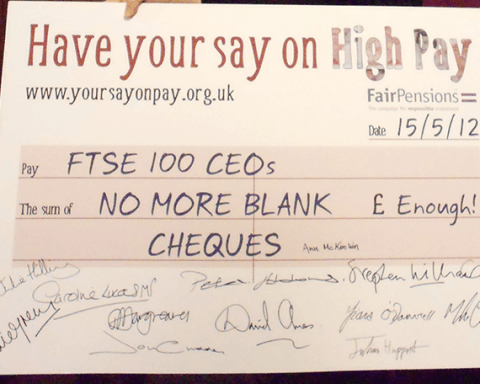 Have your say on High Pay
www.yoursayonpay.org.uk
FairPensions
Date 15/5/12
Pay FTSE 100 CEOs
The sum of NO MORE BLANK £ Enough!
CHEQUES Ann McKechin
Caroline Lucas MP
David Amess
Julian Huppert